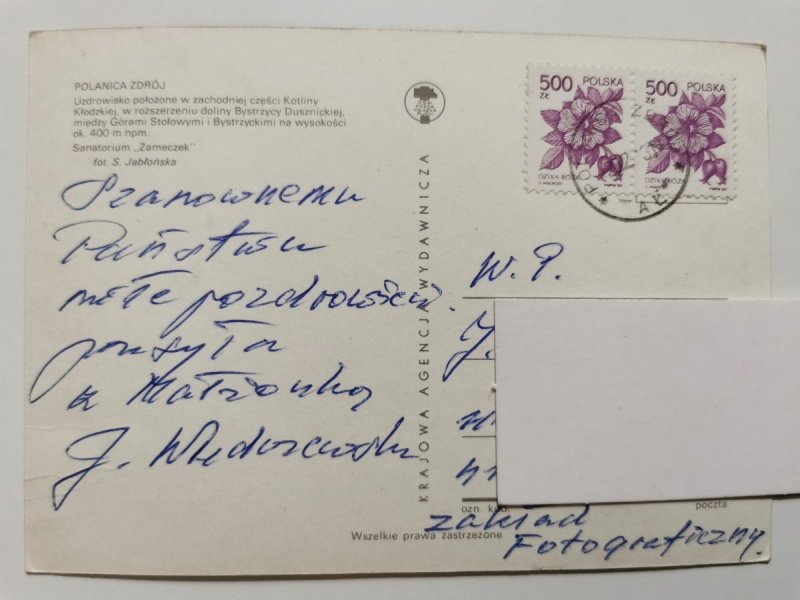 POLANICA ZDRÓJ
Uzdrowisko położone w zachodniej części Kotliny
Kłodzkiej, w rozszerzeniu doliny Bystrzycy Dusznickiej,
między Górami Stołowymi i Bystrzyckimi na wysokości
ok. 400 m npm.
Sanatorium „Zameczek”
fot. S. Jabłońska
Szanownemu
Państwu
miłe pozdrowienia
przesyła
z Małżonką
J.
KRAJOWA AGENCJA WYDAWNICZA
500 ZŁ POLSKA
DZIKA RÓŻA
500 ZŁ POLSKA
DZIKA RÓŻA
W. P.
J.
ozn. kod.
poczta
zakład
Fotograficzny
Wszelkie prawa zastrzeżone